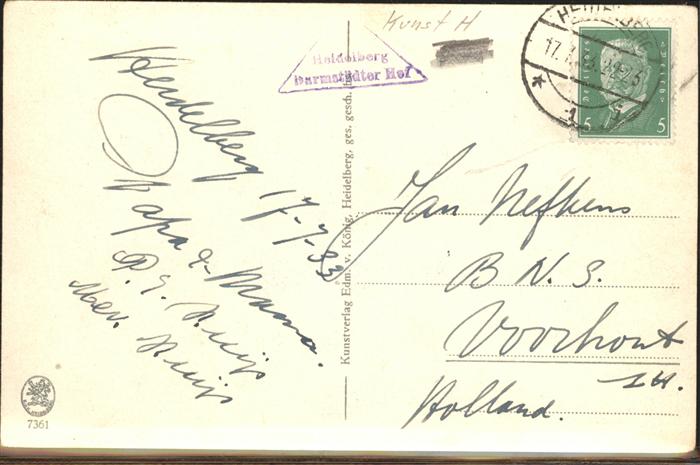 Kunst H
Heidelberg
Darmstädter Hof
HEIDELBERG
17.7.
DEUTSCHES REICH
5 5
Heidelberg 17-7-33
Papa & Mama.
P. J. Kuijs
Mev. Kuijs
Kunstverlag Edm. v. König, Heidelberg, ges. gesch.
Jan Nefkens
B. N. S.
Voorhout
Z.H.
Holland.
7361